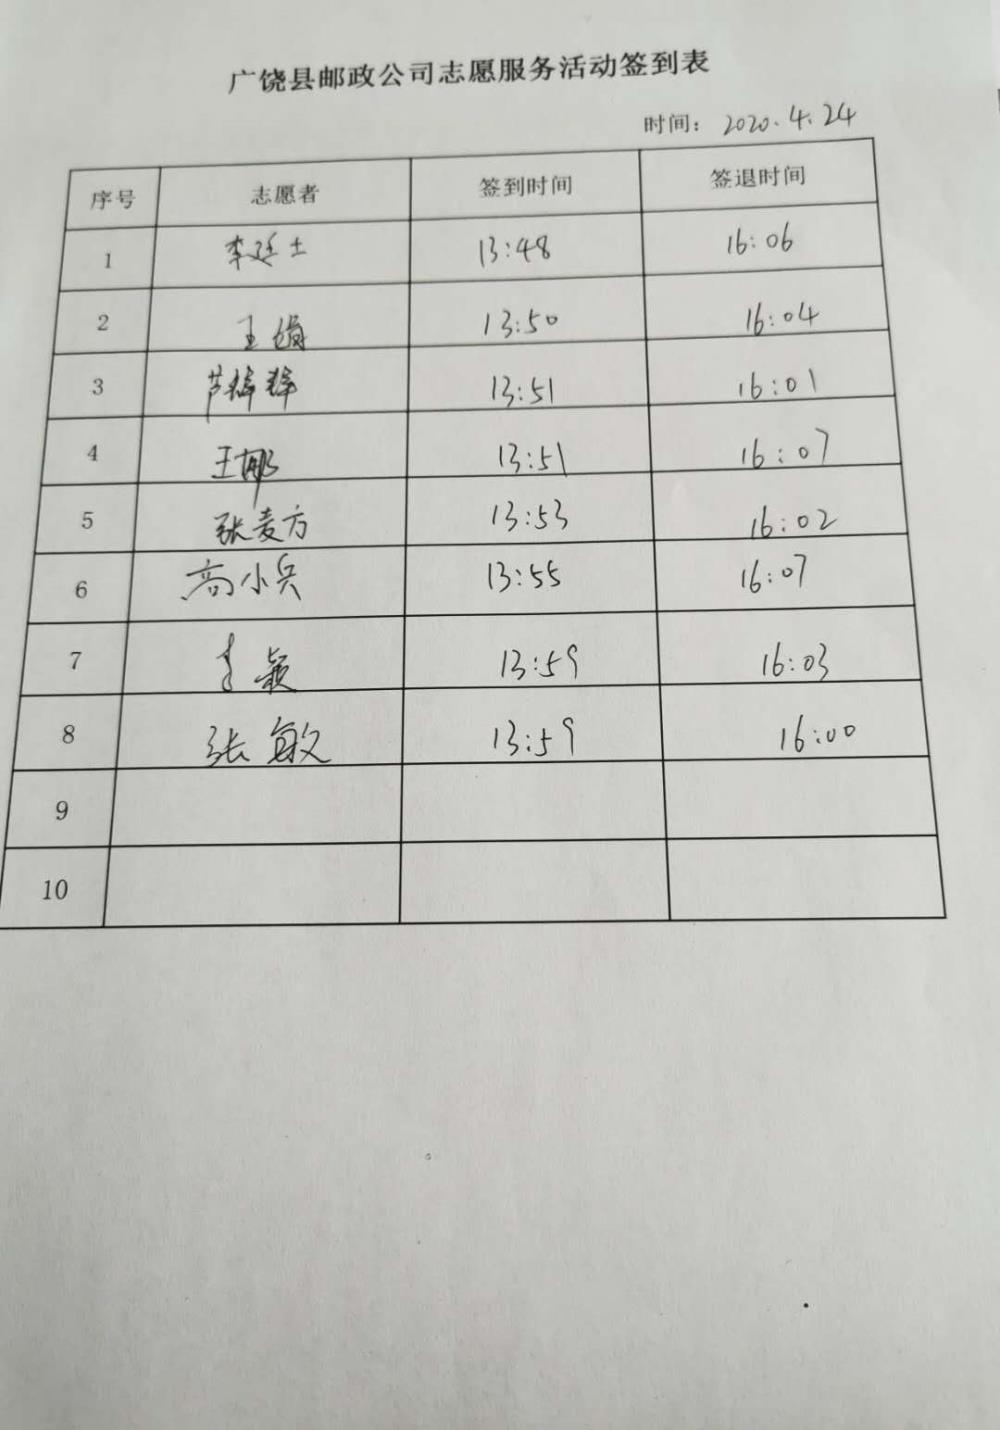 广饶县邮政公司志愿服务活动签到表
时间： 2020.4.24
序号 志愿者 签到时间 签退时间
1 李延士 13:48 16:06
2 王娟 13:50 16:04
3 13:51 16:01
4 王娜 13:51 16:07
5 张麦方 13:53 16:02
6 高小兵 13:55 16:07
7 李颖 13:59 16:03
8 张敏 13:59 16:00
9
10